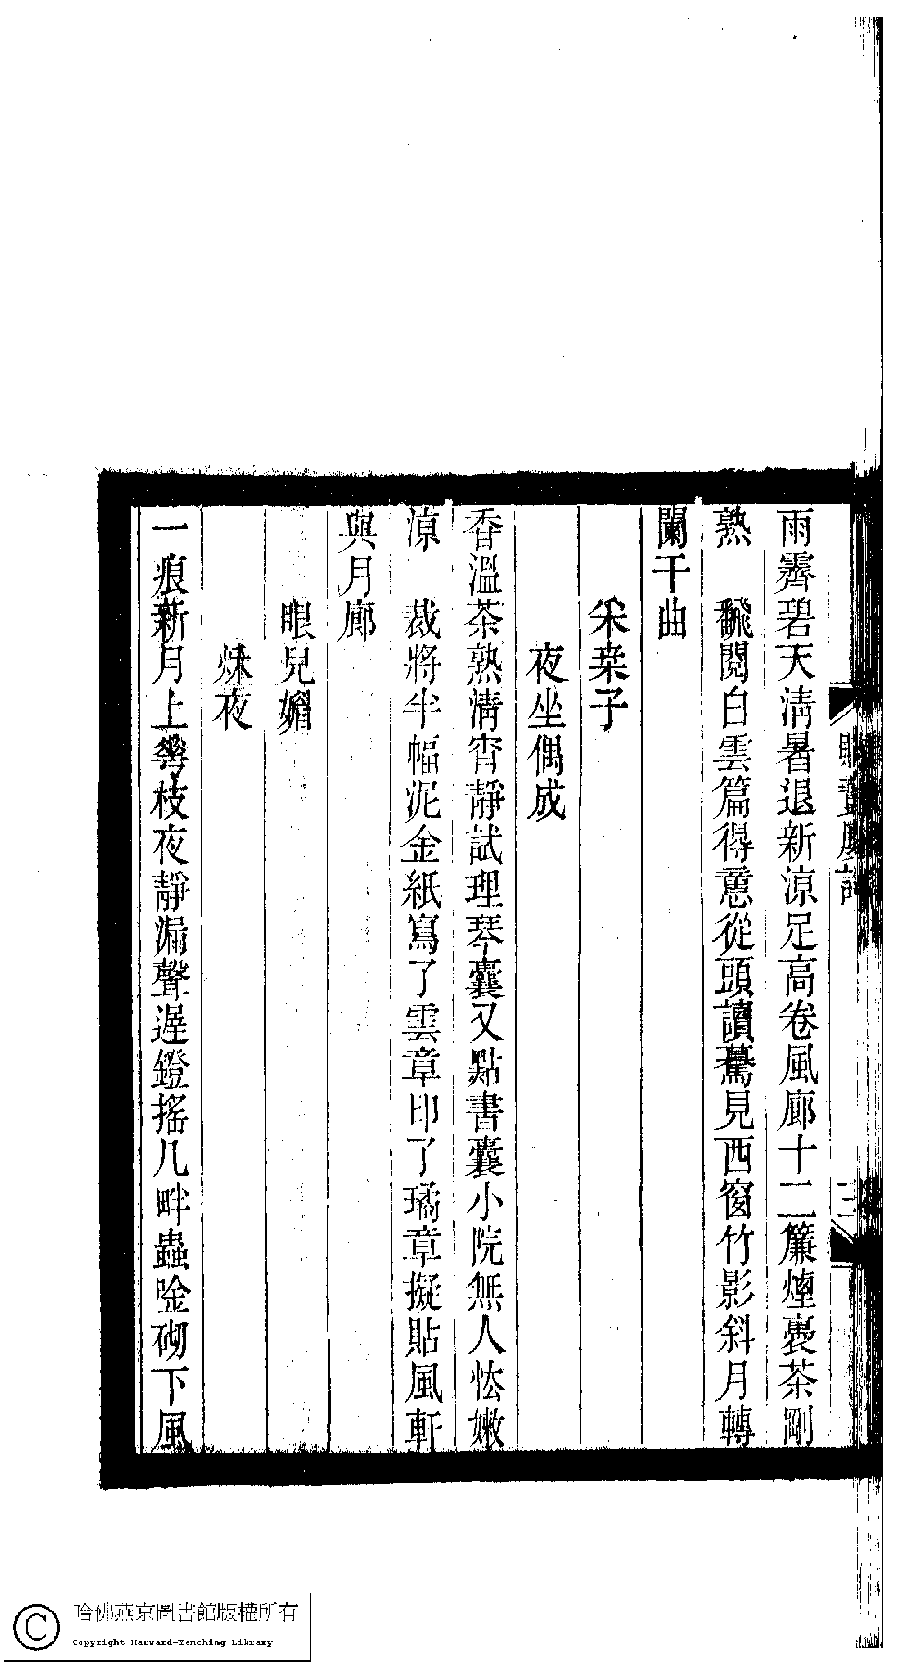 雨霽碧天淸暑退新涼足高卷風廊十二簾煙裊茶剛
熟　飜閱白雲篇得意從頭讀驀見西窗竹影斜月轉
闌干曲
采桒子
夜坐偶成
香溫茶熟淸宵靜試理琴囊又點書囊小院無人恠嫩
凉　裁將半幅泥金紙寫了雲章印了璚章擬貼風軒
與月廊
眼兒媚
秌夜
一痕新月上蕚枝夜靜漏聲遲鐙搖几畔蟲唫砌下風
三
哈佛燕京圖書館版權所有
Copyright Harvard-Yenching Library